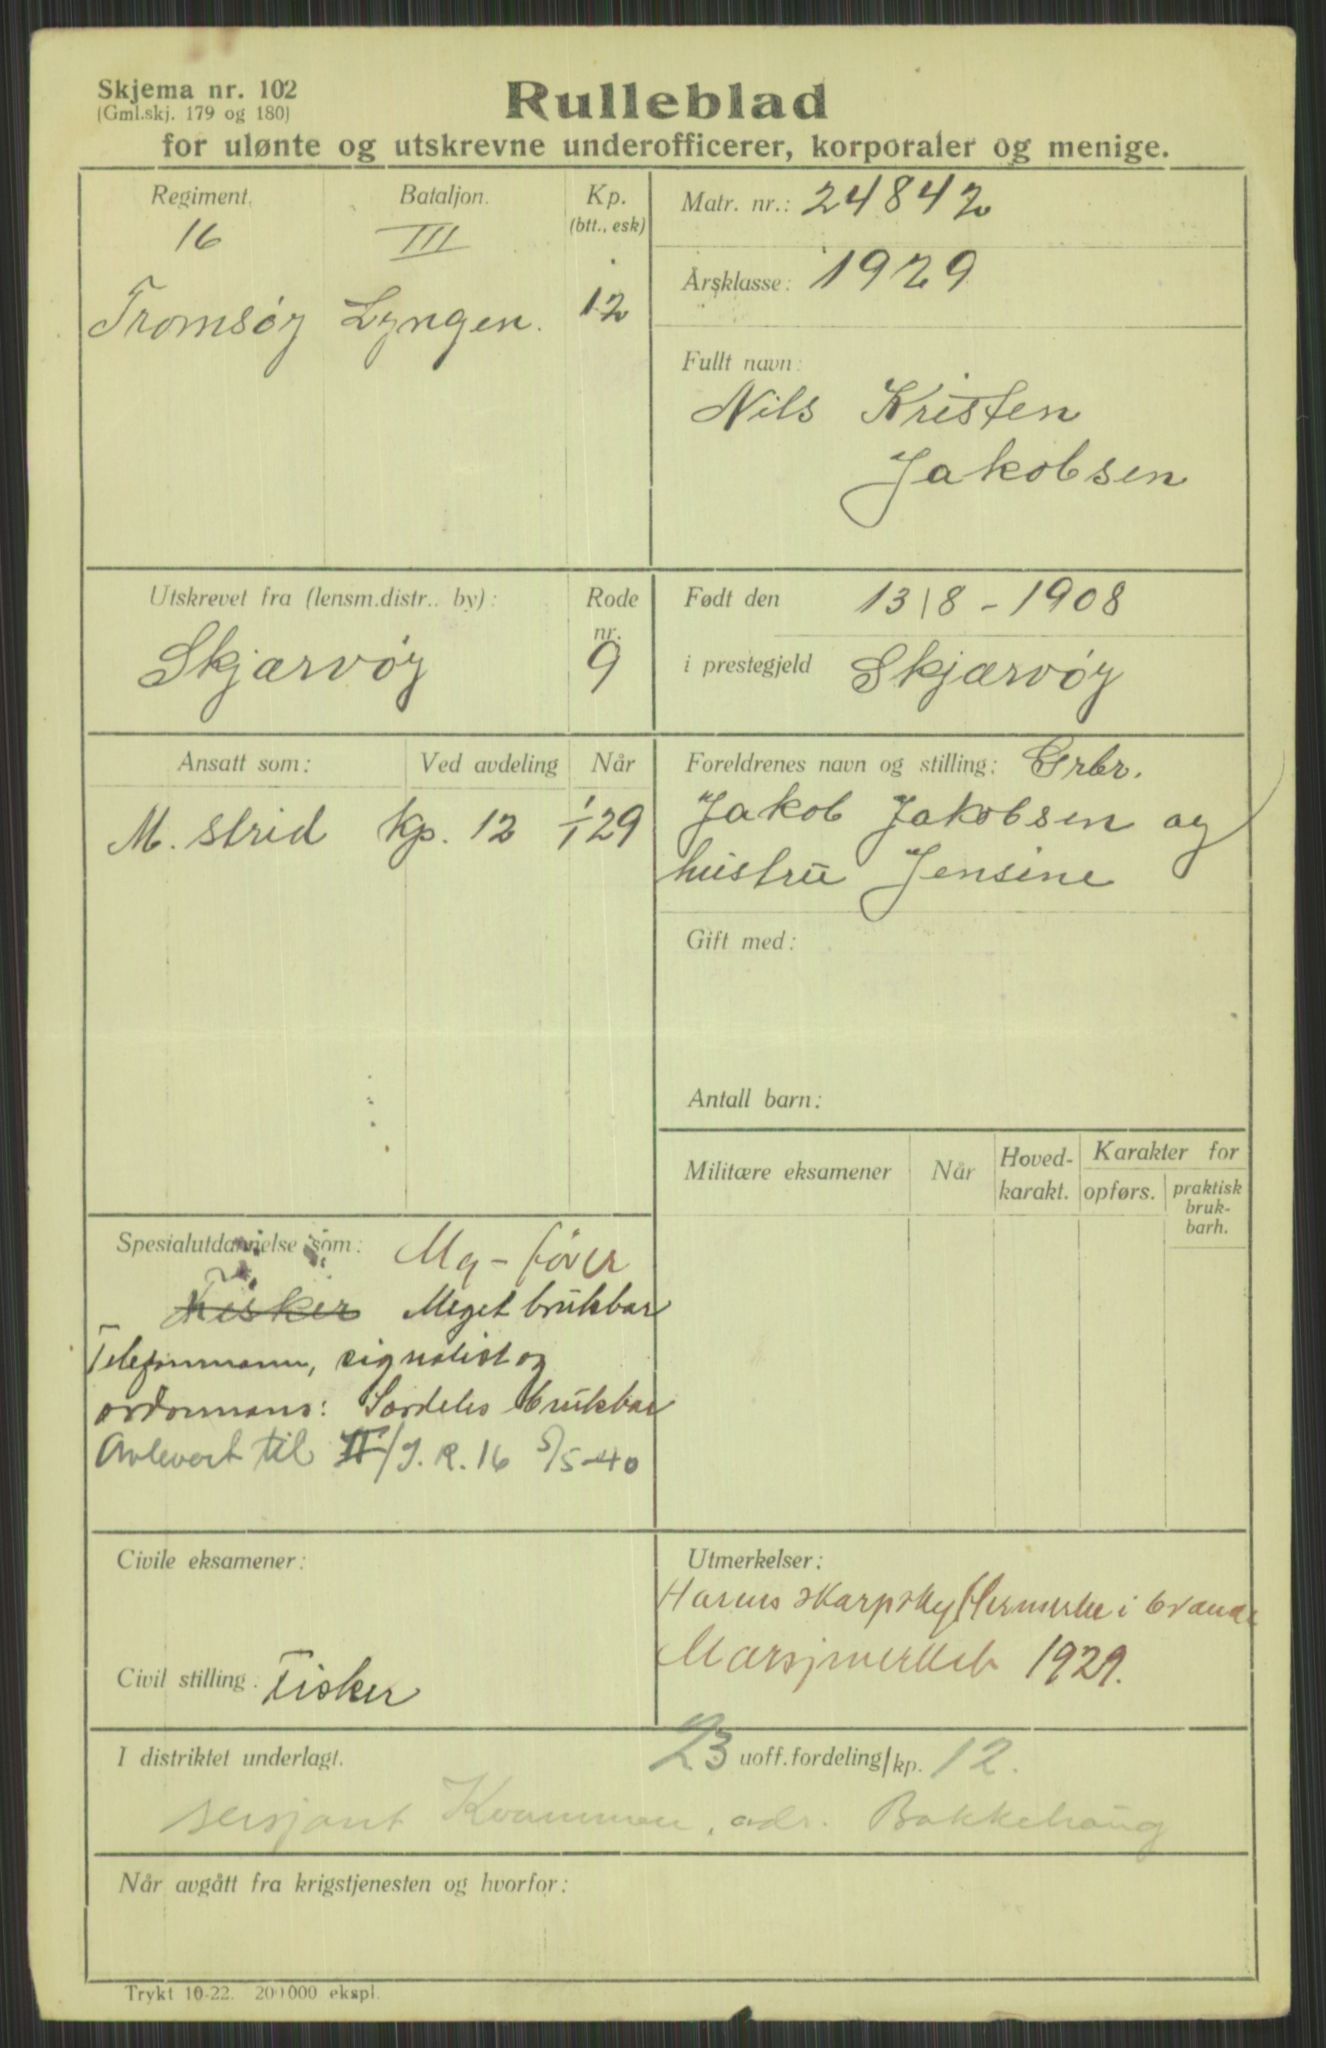 Skjema nr. 102
(Gml.skj. 179 og 180)
Rulleblad
for ulønte og utskrevne underofficerer, korporaler og menige.
Regiment. Bataljon. Kp.
(btt., esk)
16 III
Tromsøy Lyngen. 12
Matr. nr.: 24842
Årsklasse: 1929
Fullt navn:
Nils Kristen
Jakobsen
Utskrevet fra (lensm.distr.. by): Rode
nr.
Skjærvøy 9
Født den 13/8 - 1908
i prestegjeld Skjærvøy
Ansatt som: Ved avdeling Når
M. strid kp. 12 1/1 29
Foreldrenes navn og stilling: Grbr.
Jakob Jakobsen og
hustru Jensine
Gift med:
Antall barn:
Militære eksamener Når Hoved-
karakt. Karakter for
opførs. praktisk
bruk-
barh.
Spesialutdannelse som: Mg - fører
Fisker Meget brukbar
Telefonmann, signalist og
ordonnans: Særdeles brukbar
Avlevert til II/J.R. 16 5/5-40
Civile eksamener:
Civil stilling. Fisker
Utmerkelser:
Hærens skarpskyttermerke i
Marsjmerket 1929.
I distriktet underlagt. 23 uoff.fordeling/kp. 12.
sersjant Kvammen, adr. Bakkehaug
Når avgått fra krigstjenesten og hvorfor:
Trykt 10-22. 200000 ekspl.